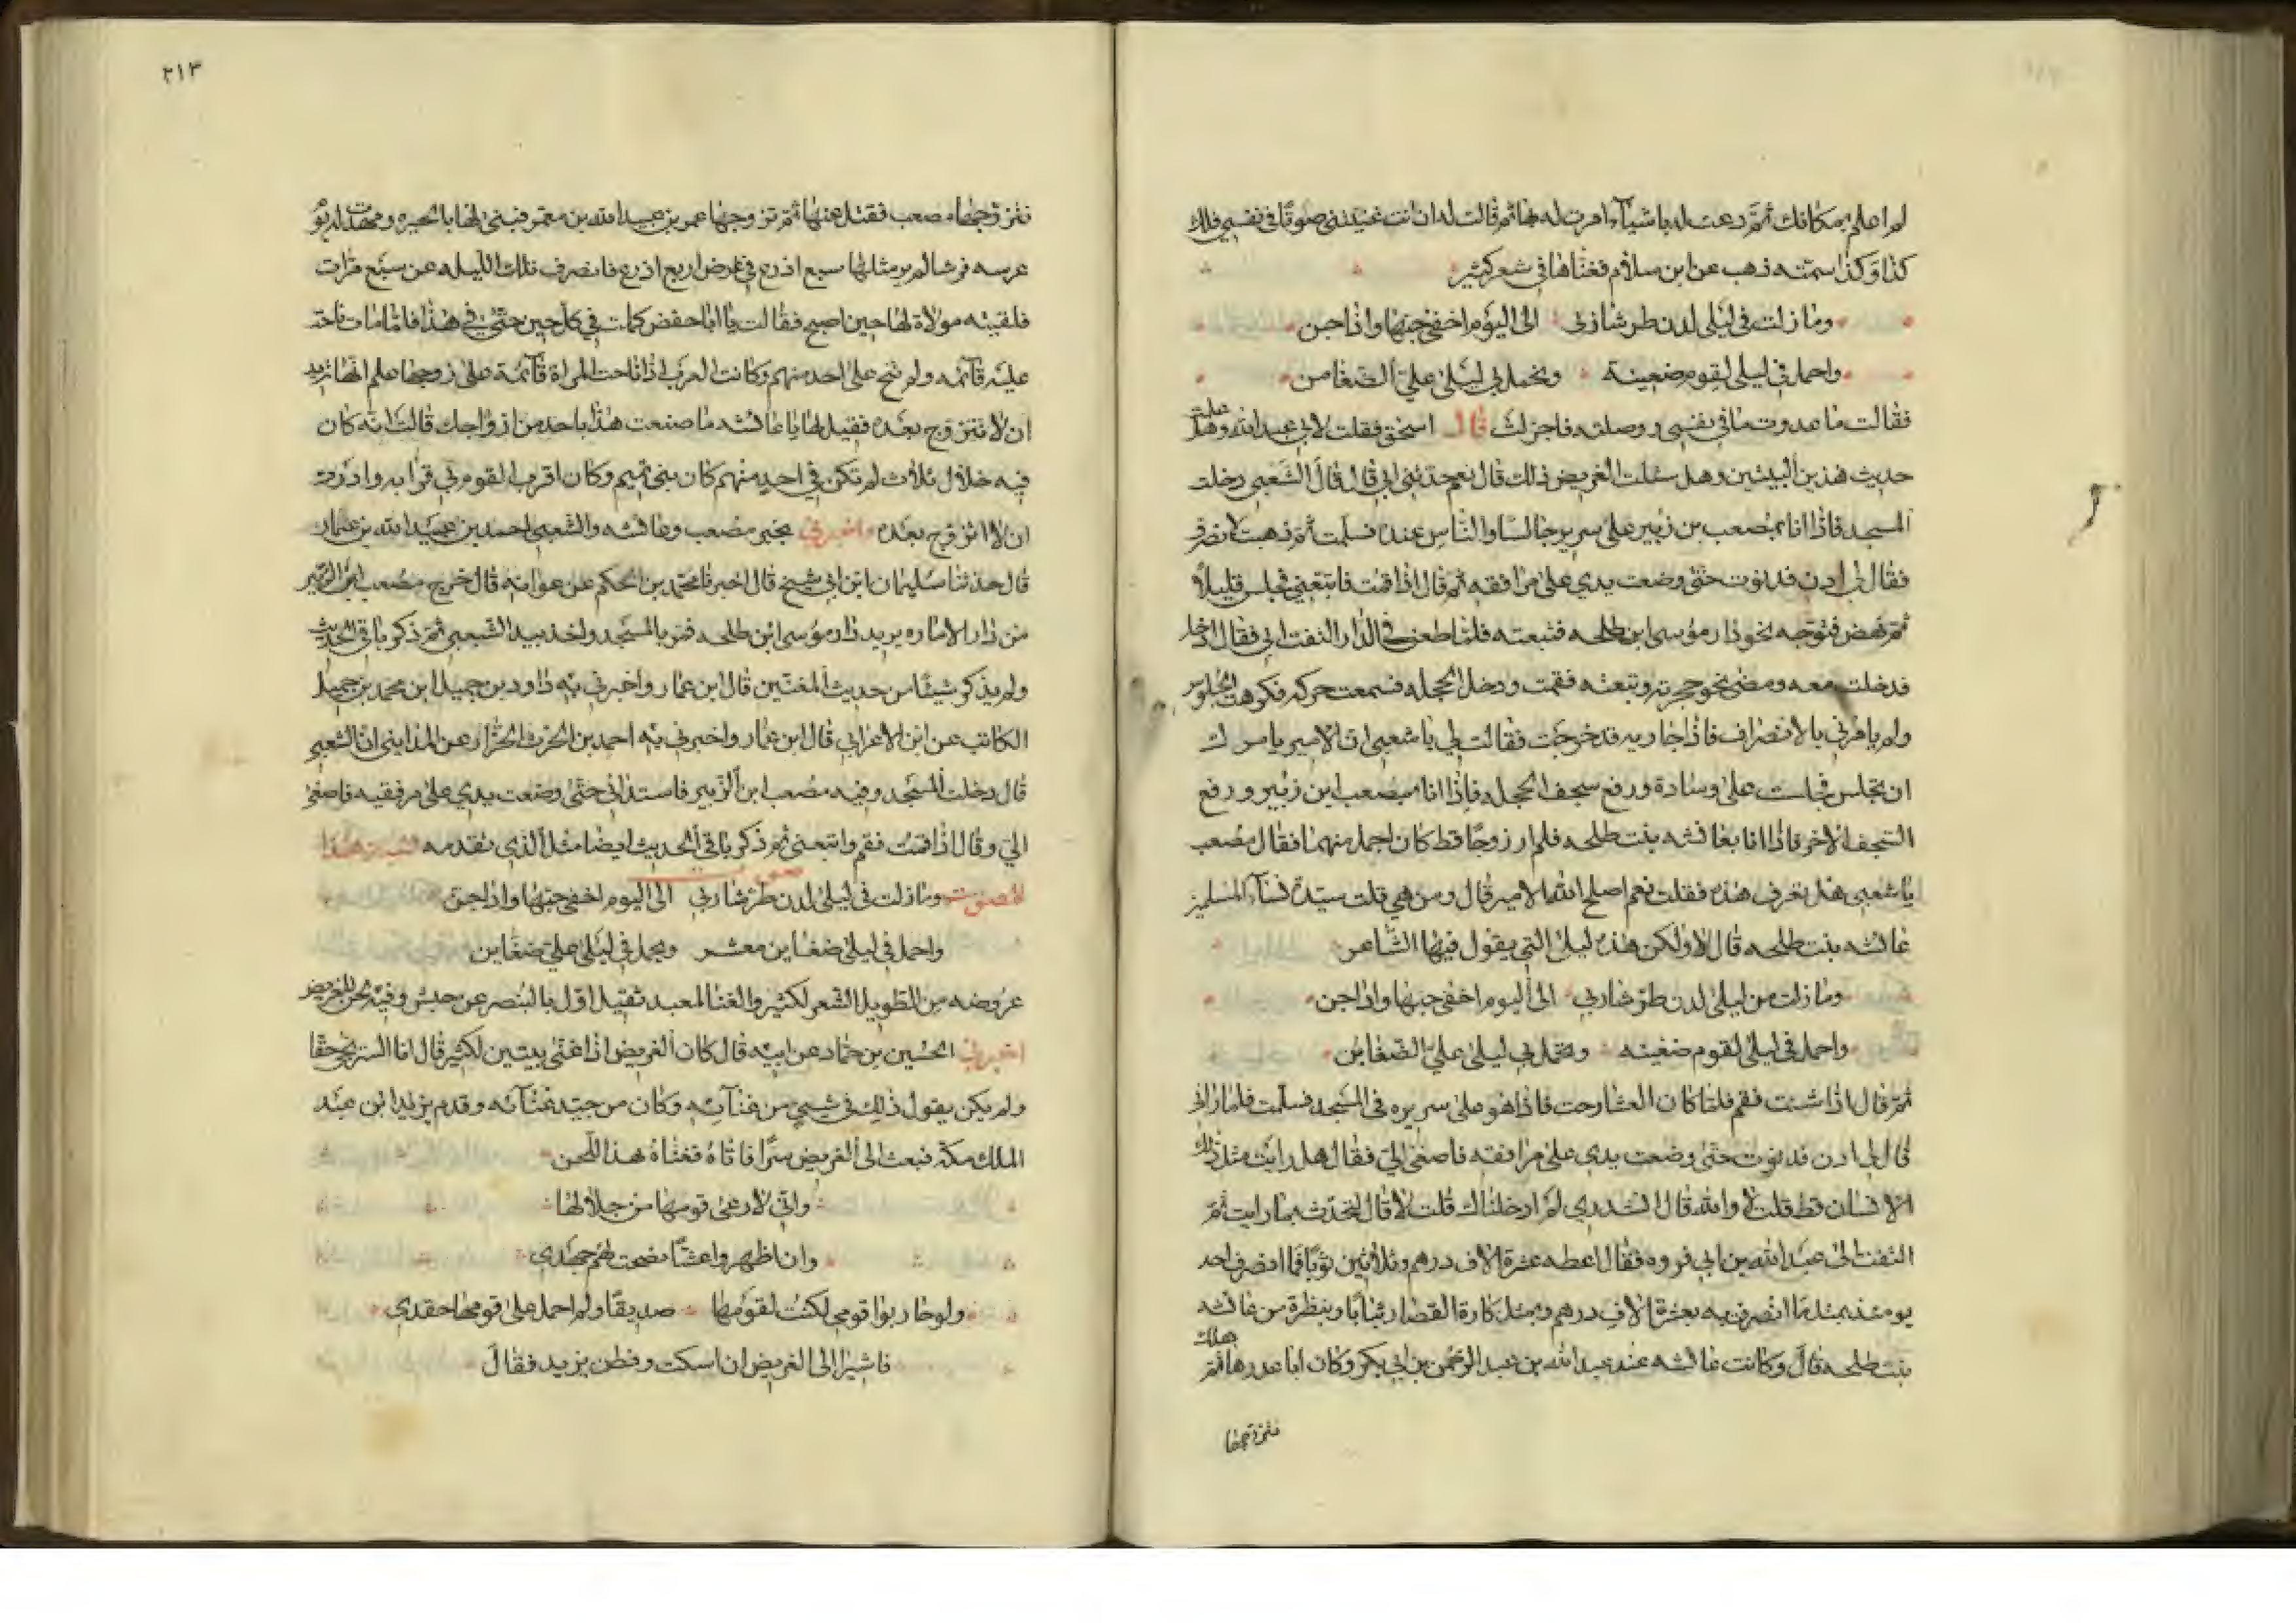 لم اعلم بمكانك ثم دعت له باشياء امرت له بها ثم قالت له ان انت غنيتني صوتا في نفسي فلك
كذا وكذا سمته ذهب عن ابن سلام فغناها في شعر كثير
وما زلت في ليلى لدن طر شاربي الى اليوم اخفي حبها واداجن
واحمل في ليلى لقوم ضغينة وتحمل في ليلى علي الضغاين
فقالت ما عدوت ما في نفسي ووصلته فاجزلت قال اسحق فقلت لابي عبد الله وهل علمت
حديث هذين البيتين وهل سئلت الغريض ذلك قال نعم حدثني ابي قال قال الشعبي دخلت
المسجد فاذا انا بمصعب بن زبير على سرير جالسا والناس عنده فسلمت ثم ذهبت لانصرف
فقال لي ادن فدنوت حتى وضعت يدي على مرافقه ثم قال اذا قمت فاتبعني فجلس قليلا
ثم نهض فتوجه نحو دار موسى ابن طلحه فتبعته فلما طعن في الدار التفت الي فقال ادخل
فدخلت معه ومضى نحو حجرته وتبعته فقمت ودخل الحجله فسمعت حركه فكرهت الجلوس
ولم يامرني بالانصراف فاذا جاريه قد خرجت فقالت لي يا شعبي ان الامير يامرك
ان تجلس فجلست على وسادة ورفع سجف الحجله فاذا انا بمصعب ابن زبير ورفع
السجف الاخر فاذا انا بعائشه بنت طلحه فلم ار زوجا قط كان اجمل منهما فقال مصعب
يا شعبي هل تعرف هذه فقلت نعم اصلح الله الامير قال ومن هي قلت سيدة نساء المسلمين
عائشه بنت طلحه قال لا ولكن هذه ليلى التي يقول فيها الشاعر
وما زلت من ليلى لدن طر شاربي الى اليوم اخفي حبها واداجن
واحمل في ليلى لقوم ضغينه وتحمل بي ليلى علي الضغاين
ثم قال اذا شئت فقم فلما كان العشا رحت فاذا هو على سريره في المسجد فسلمت فلما راني
قال لي ادن فدنوت حتى وضعت يدي على مرافقه فاصغى الي فقال هل رايت مثل ذلك
الانسان قط قلت لا والله قال اتدري لم ادخلناك قلت لا قال لتحدث بما رايت ثم
التفت الى عبد الله بن ابي فروه فقال اعطه عشرة الاف درهم وثلاثين ثوبا فما انصرف احد
يومئذ بمثل ما انصرفت به بعشرة الاف درهم وبمثل كارة القصار ثيابا وبنظرة من عائشه
بنت طلحه قال وكانت عائشه عند عبد الله بن عبد الرحمن بن ابي بكر وكان ابا عذرها ثم هلك
فتزوجها
٢١٣
فتزوجها مصعب فقتل عنها ثم تزوجها عمر بن عبيد الله بن معمر فبنى لها بالحيره ومهدت له يوم
عرسه فرشا لم ير مثلها سبع اذرع في عرض اربع اذرع فانصرف تلك الليله عن سبع مرات
فلقيته مولاة لها حين اصبح فقالت يا ابا حفص كملت في كل حين حتى في هذا فلما مات ناحت
عليه قائمه ولم تنح على احد منهم وكانت العرب اذا ناحت المراة قائمة على زوجها علم انها تريد
ان لا تتزوج بعده فقيل لها يا عائشه ما صنعت هذا باحد من ازواجك قالت انه كان
فيه خلال ثلاث لم تكن في احد منهم كان بني تميم وكان اقرب القوم بي قرابه واردت
ان لا اتزوج بعده واخبرني بخبر مصعب وعائشه والشعبي احمد بن عبيد الله بن عمار
قال حدثنا سليمان ابن ابي شيخ قال اخبرنا محمد بن الحكم عن عوانه قال خرج مصعب بن الزبير
من دار الاماره يريد دار موسى ابن طلحه فمر بالمسجد واخذ بيد الشعبي ثم ذكر باقي الحديث
ولم يذكر شيئا من حديث المغنين قال ابن عمار واخبرني به داود بن جميل ابن محمد بن جميل
الكاتب عن ابن الاعرابي قال ابن عمار واخبرني به احمد بن الحرث الخزاز عن المدايني ان الشعبي
قال دخلت المسجد وفيه مصعب ابن الزبير فاستدناني حتى وضعت يدي على مرفقيه فاصغى
الي وقال اذا قمت فقم واتبعني ثم ذكر باقي الحديث ايضا مثل الذي تقدمه نسبة هذا
الصوت صوت وما زلت في ليلى لدن طر شاربي الى اليوم اخفي حبها واداجن
واحمل في ليلى ضغاين معشر وتحمل في ليلى علي ضغاين
عروضه من الطويل الشعر لكثير والغنا لمعبد ثقيل اول بالبنصر عن حبش وفيه لحن للغريض
اخبرني الحسين بن حماد عن ابيه قال كان الغريض اذا غنى بيتين لكثير قال انا السريجي حقا
ولم يكن يقول ذلك في شيي من غنائه وكان من جيد غنائه وقدم يزيد ابن عبد
الملك مكة فبعث الى الغريض سرا فاتاه فغناه هذا اللحن
واني لارعى قومها من جلالها
وان اظهروا غشا نصحت لهم جهدي
ولو حاربوا قومي لكنت لقومها صديقا ولم احمل على قومها حقدي
فاشير الى الغريض ان اسكت وفطن يزيد فقال